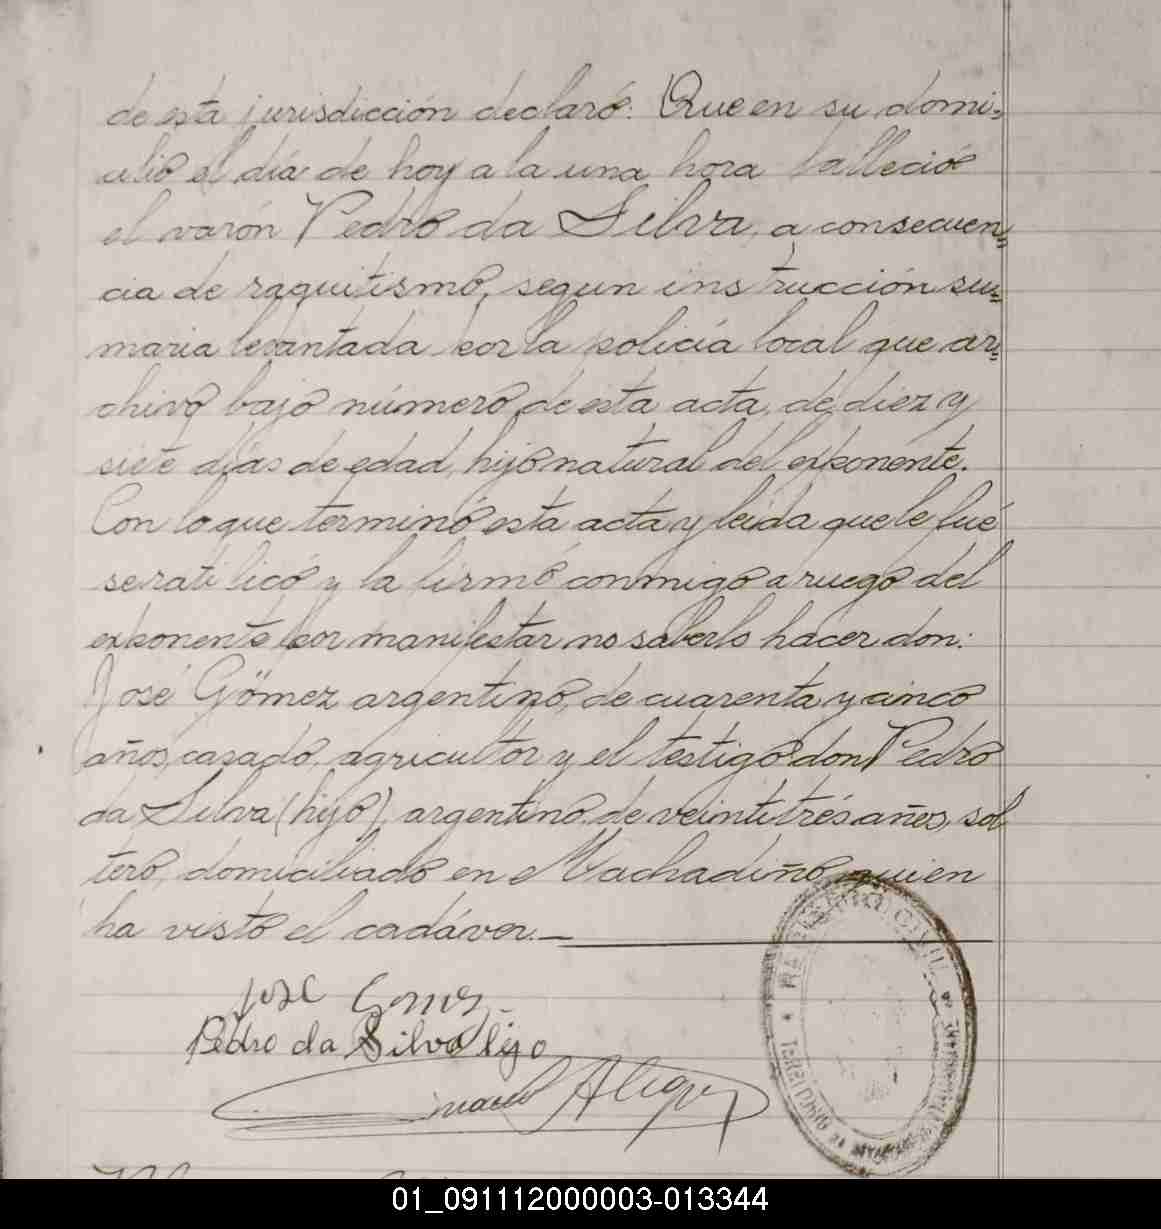 de esta jurisdicción declaró: Que en su domi-
cilio el día de hoy a la una hora falleció
el varón Pedro da Silva, a consecuen-
cia de raquitismo, segun instrucción su-
maria levantada por la policía local que ar-
chivo bajo número de esta acta, de diez y
siete días de edad, hijo natural del exponente.
Con lo que terminó esta acta y leída que le fué
se ratificó y la firmó conmigo a ruego del
exponente por manifestar no saberlo hacer don:
José Gómez argentino, de cuarenta y cinco
años, casado, agricultor y el testigo don Pedro
da Silva (hijo), argentino, de veintitrés años, sol
tero, domiciliado en Machadiño, quien
ha visto el cadáver.
José Gomez
Pedro da Silva hijo
REGISTRO CIVIL
01_091112000003-013344